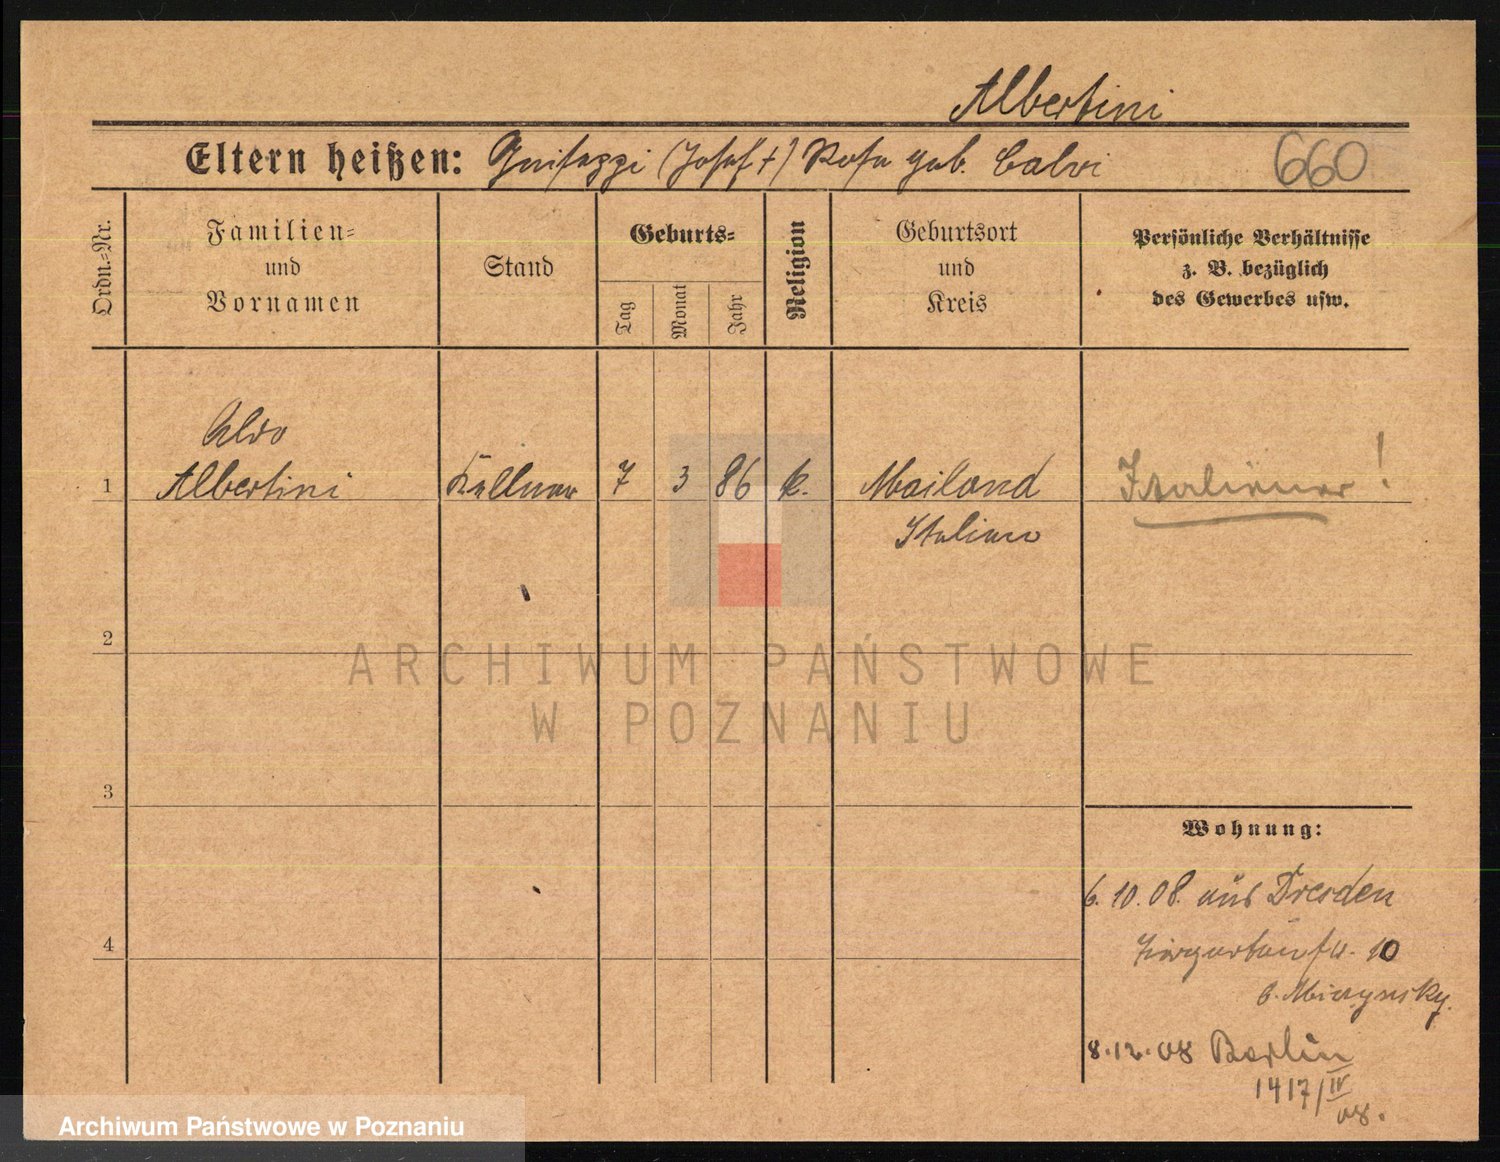 Albertini
Eltern heißen: Guiseppi (Josef †) Rosa geb. Calvi
660
Ordn.-Nr.
Familien-
und
Vornamen
Stand
Geburts-
Tag
Monat
Jahr
Religion
Geburtsort
und
Kreis
Persönliche Verhältnisse
z. B. bezüglich
des Gewerbes usw.
Aldo
1 Albertini Kellner 7 3 86 k. Mailand Italiener!
Italien
2
ARCHIWUM PAŃSTWOWE
W POZNANIU
3
Wohnung:
6. 10. 08. aus Dresden
4
Tiergartenstr. 10
b.
8.12.08 Berlin
1417/IV
08.
Archiwum Państwowe w Poznaniu